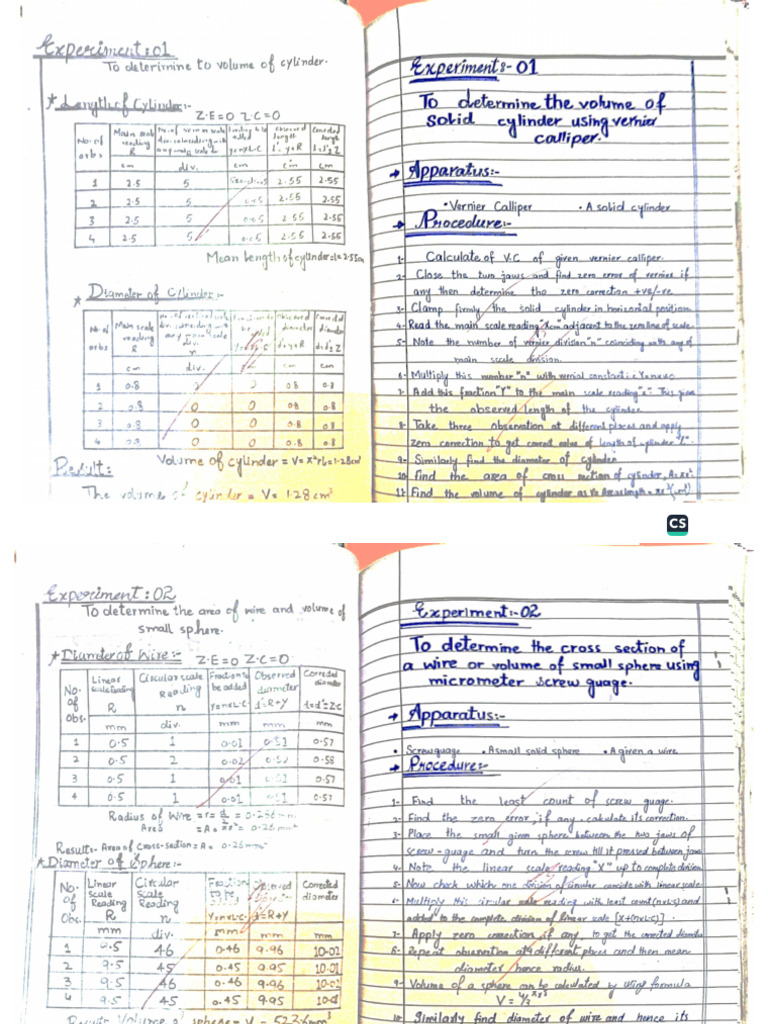 Experiment: 01
To deterimine to volume of cylinder.
★ Length of Cylinder:-
Z.E=0 Z.C=0
No. of obs
Main scale reading R
No. of vernier scale div. coinciding with any main scale
Observed length l'=x+R
Corrected length
cm div. cm cm cm
1 2.5 5 2.55 2.55
2 2.5 5 0.05 2.55 2.55
3 2.5 5 0.05 2.55 2.55
4 2.5 5 0.05 2.55 2.55
Mean length of cylinder=l=2.55cm
★ Diameter of Cylinder:-
No. of obs
Main scale reading R
any main scale div. n
Observed diameter
Corrected diameter
cm div. cm cm
1 0.8 0 0.8 0.8
2 0.8 0 0 0.8 0.8
3 0.8 0 0 0.8 0.8
4 0.8 0 0 0.8 0.8
Volume of cylinder = V= =1.28cm³
Result:
The volume of cylinder = V= 1.28 cm³
Experiment:- 01
To determine the volume of
solid cylinder using vernier
calliper.
→ Apparatus:-
• Vernier Calliper • A solid cylinder
→ Procedure:-
1- Calculate of V.C of given vernier calliper.
2- Close the two jaws and find zero error of vernier if
any then determine the zero correction +ve/-ve
3- Clamp firmly the solid cylinder in horizontal position
4- Read the main scale reading adjacent to the zero line of scale
5- Note the number of vernier division "n" coinciding with any of
main scale division.
6- Multiply this number "n" with vernial constant i.e
7- Add this fraction "Y" to the main scale reading This give
the observed length of the cylinder
8- Take three observation at different places and apply
zero correction to get correct value of length of cylinder "L"
9- Similarly find the diameter of cylinder
10- Find the area of cross section of cylinder,
11- Find the volume of cylinder as
CS
Experiment: 02
To determine the area of wire and volume of
small sphere.
★ Diameter of Wire:-
Z.E=0 Z.C=0
No. of Obs.
Linear scale reading R
Circular scale Reading n
Fraction to be added y=n×L.C
Observed diameter d'=R+Y
Corrected diameter
mm div. mm mm mm
1 0.5 1 0.01 0.51 0.57
2 0.5 2 0.02 0.52 0.58
3 0.5 1 0.01 0.51 0.57
4 0.5 1 0.01 0.51 0.57
Radius of Wire =r= d/2 =
Area =A= πr² = 0.26 mm²
Results- Area of Cross-section = A = 0.26 mm²
★ Diameter of Sphere:-
No. Of Obs.
Linear Scale Reading R
Circular Scale Reading n
Fraction Y=n×L.C
Observed d'=R+Y
Corrected diameter
mm div. mm mm mm
1 9.5 46 0.46 9.96 10.02
2 9.5 45 0.45 9.95 10.01
3 9.5 46 0.46 9.96
4 9.5 45 0.45 9.95
Result: Volume of sphere = V = 523.6mm³
Experiment:- 02
To determine the cross section of
a wire or volume of small sphere using
micrometer screw guage.
→ Apparatus:-
• Screw guage • A small solid sphere • A given a wire
→ Procedure:-
1- Find the least count of screw guage.
2- Find the zero error, if any. calculate its correction.
3- Place the small given sphere between the two jaws of
screw-guage and turn the screw till it pressed between jaws
4- Note the linear scale reading "X" up to complete division
5- Now check which one division of circular concide with linear scale
6- Multiply this circular scale reading with least count (n×L.C) and
added to the complete division of linear scale [X+(n×L.C)].
7- Apply zero correction if any to get the corrected diameter
8- Repeat observation at different places and then mean
diameter hence radius.
9- Volume of a sphere can be calculated by using formula
V = 4/3 πr³
10- Similarly find diameter of wire and hence its